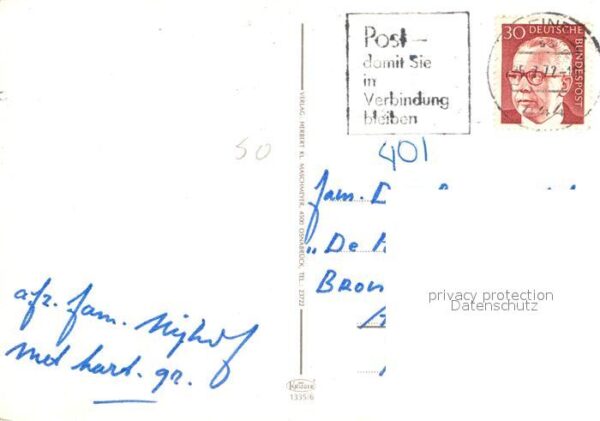 Post –
damit Sie
in
Verbindung
bleiben
30 DEUTSCHE
BUNDESPOST
50
401
VERLAG HERBERT KL. MASCHMEYER, 4500 OSNABRÜCK, TEL. 23722
fam. D
"De
BRON
privacy protection
Datenschutz
afz. fam. Nijhof
met hart. gr.
Krüger
1335/6